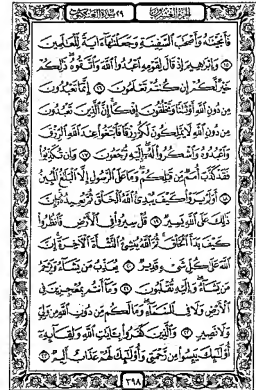 الجزء العشرون ٢٩ سورة العنكبوت
فَأَنجَيْنَٰهُ وَأَصْحَٰبَ ٱلسَّفِينَةِ وَجَعَلْنَٰهَآ ءَايَةً لِّلْعَٰلَمِينَ
١٥ وَإِبْرَٰهِيمَ إِذْ قَالَ لِقَوْمِهِ ٱعْبُدُوا۟ ٱللَّهَ وَٱتَّقُوهُ ذَٰلِكُمْ
خَيْرٌ لَّكُمْ إِن كُنتُمْ تَعْلَمُونَ ١٦ إِنَّمَا تَعْبُدُونَ
مِن دُونِ ٱللَّهِ أَوْثَٰنًا وَتَخْلُقُونَ إِفْكًا إِنَّ ٱلَّذِينَ تَعْبُدُونَ
مِن دُونِ ٱللَّهِ لَا يَمْلِكُونَ لَكُمْ رِزْقًا فَٱبْتَغُوا۟ عِندَ ٱللَّهِ ٱلرِّزْقَ
وَٱعْبُدُوهُ وَٱشْكُرُوا۟ لَهُۥٓ إِلَيْهِ تُرْجَعُونَ ١٧ وَإِن تُكَذِّبُوا۟
فَقَدْ كَذَّبَ أُمَمٌ مِّن قَبْلِكُمْ وَمَا عَلَى ٱلرَّسُولِ إِلَّا ٱلْبَلَٰغُ ٱلْمُبِينُ
١٨ أَوَلَمْ يَرَوْا۟ كَيْفَ يُبْدِئُ ٱللَّهُ ٱلْخَلْقَ ثُمَّ يُعِيدُهُۥٓ إِنَّ
ذَٰلِكَ عَلَى ٱللَّهِ يَسِيرٌ ١٩ قُلْ سِيرُوا۟ فِى ٱلْأَرْضِ فَٱنظُرُوا۟
كَيْفَ بَدَأَ ٱلْخَلْقَ ثُمَّ ٱللَّهُ يُنشِئُ ٱلنَّشْأَةَ ٱلْءَاخِرَةَ إِنَّ
ٱللَّهَ عَلَىٰ كُلِّ شَىْءٍ قَدِيرٌ ٢٠ يُعَذِّبُ مَن يَشَآءُ وَيَرْحَمُ
مَن يَشَآءُ وَإِلَيْهِ تُقْلَبُونَ ٢١ وَمَآ أَنتُم بِمُعْجِزِينَ فِى
ٱلْأَرْضِ وَلَا فِى ٱلسَّمَآءِ وَمَا لَكُم مِّن دُونِ ٱللَّهِ مِن وَلِىٍّ
وَلَا نَصِيرٍ ٢٢ وَٱلَّذِينَ كَفَرُوا۟ بِـَٔايَٰتِ ٱللَّهِ وَلِقَآئِهِۦٓ
أُو۟لَٰٓئِكَ يَئِسُوا۟ مِن رَّحْمَتِى وَأُو۟لَٰٓئِكَ لَهُمْ عَذَابٌ أَلِيمٌ ٢٣
٣٩٨